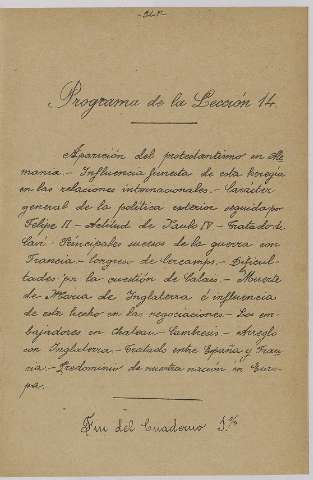 Programa de la Lección 14.
Aparición del protestantismo en Ale
mania.- Influencia funesta de esta heregia
en las relaciones internacionales.- Carácter
general de la política exterior seguida por
Felipe II.- Actitud de Paulo IV.- Tratado de
Cavi.- Principales sucesos de la guerra en
Francia.- Congreso de Cercamps.- Dificul-
tades por la cuestión de Calais.- Muerte
de Maria de Inglaterra é influencia
de este hecho en las negociaciones.- Los em-
bajadores en Chateau-Cambresis.- Arreglo
con Inglaterra.- Tratado entre España y Fran
cia.- Predominio de nuestra nación en Euro-
pa.
Fin del Cuaderno 3.º